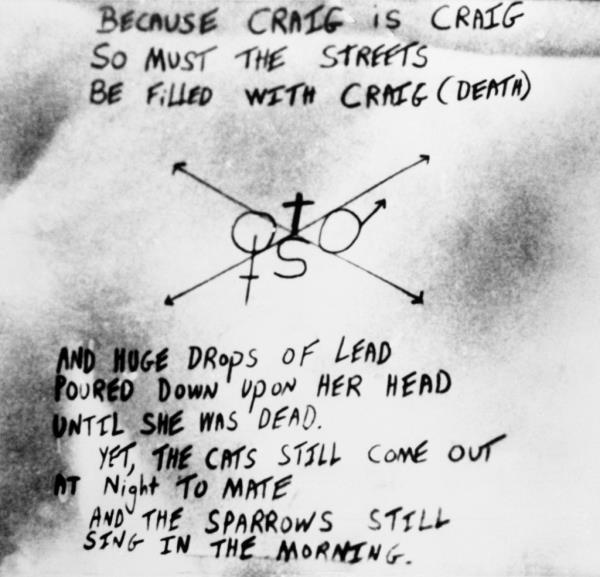 BECAUSE CRAIG is CRAIG
SO MUST THE STREETS
BE FiLLED WITH CRAIG (DEATH)
S
AND HUGE DROPS OF LEAD
POURED DOWN UPON HER HEAD
UNTIL SHE WAS DEAD.
YET, THE CATS STILL COME OUT
AT Night TO MATE
AND THE SPARROWS STILL
SING IN THE MORNING.